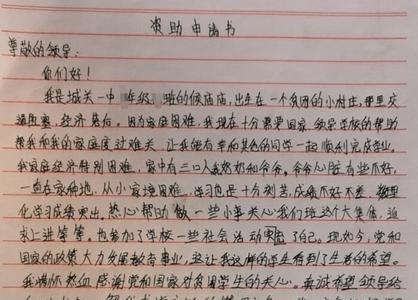 资助申请书
尊敬的领导:
你们好!
我是城关一中 年级 班的候庙庙,出生在一个贫困的小村庄,那里交
通阻塞,经济落后。因为家庭困难,我现在十分需要国家、领导学校的帮助
帮我和我的家庭度过难关,让我能有幸和其他的同学一起顺利完成学业。
我家庭经济特别困难,家中有三口人我奶奶和爷爷。爷爷心脏有些不好,
一直在家种地,从小家境困难,学习也是十分刻苦,成绩不好不差,数理
化学习成绩突出。热心帮助 做一些小事关心我们班这个大集体,追
求上进等等。也参加了学校一些社会活动 了自己。现如今,党和
国家的政策大力发展教育事业,这让我这样的学生看到了生者的希望。
我满怀热血感谢党和国家对贫困学生的关心。真诚希望领导给